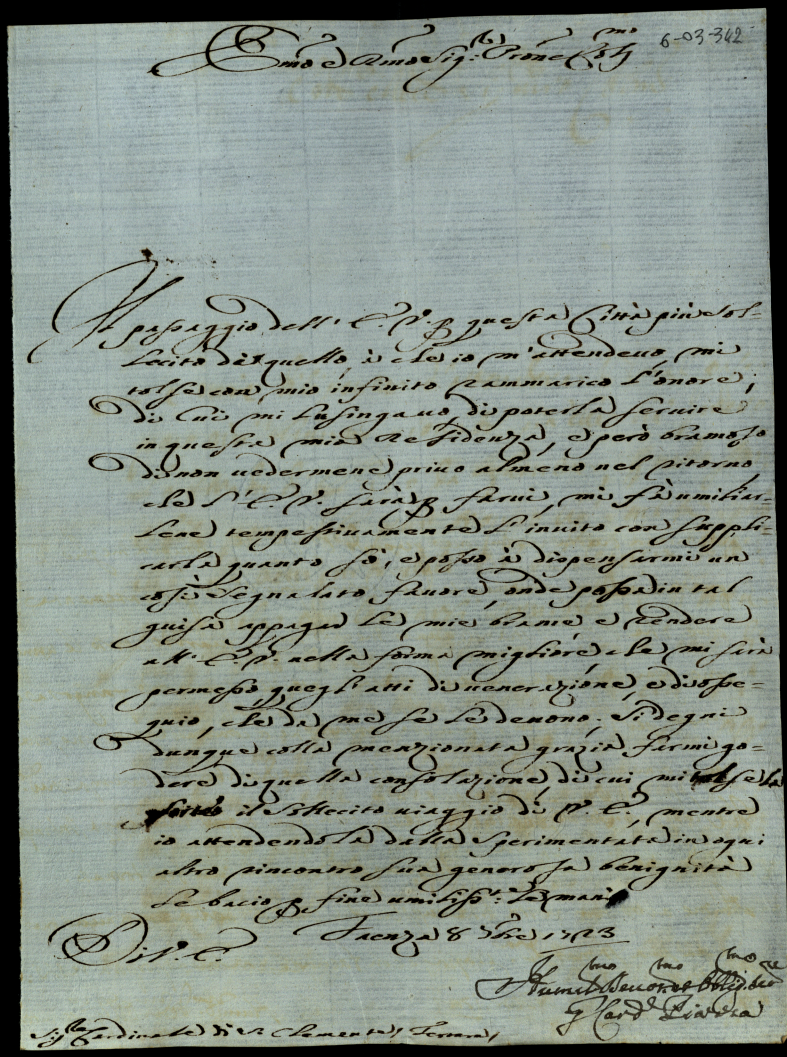 6-03-342
Em̃o e Rm̃o Sig.r Prõne
Il passaggio dell' E. V. p questa Città più sol-
lecito di quello, à che io m'attendeuo, mi
tolse con mio infinito rammarico l'onore,
di cui mi lusingauo, di poterla seruire
in questa mia Residenza, e però bramoso
di non uedermene priuo almeno nel ritorno,
che l' E. V. sarà p farui, mi fò umiliar-
lene tempestiuamente l'inuito con suppli-
carla quanto sò, e posso à dispensarmi un
così segnalato fauore, onde possa in tal
guisa appagar le mie brame e rendere
all' E. V. nella forma migliore, che mi sarà
permesso, quegl'atti di uenerazione, e di osse-
quio, che da me se le deuono. Si degni
dunque colla menzionata grazia farmi go-
dere di quella consolazione, di cui mi tolse la
il sollecito uiaggio di V. E., mentre
io attendendola dalla sperimentata in ogni
altro rincontro sua generosa benignità
le bacio p fine umiliss.te le mani
Faenza 8 7bre 1723
Di V. E.
Humil.mo Deuot.mo Obblig.mo
G Card.
Sig.r Cardinale di S. Clemente/ Ferrara/